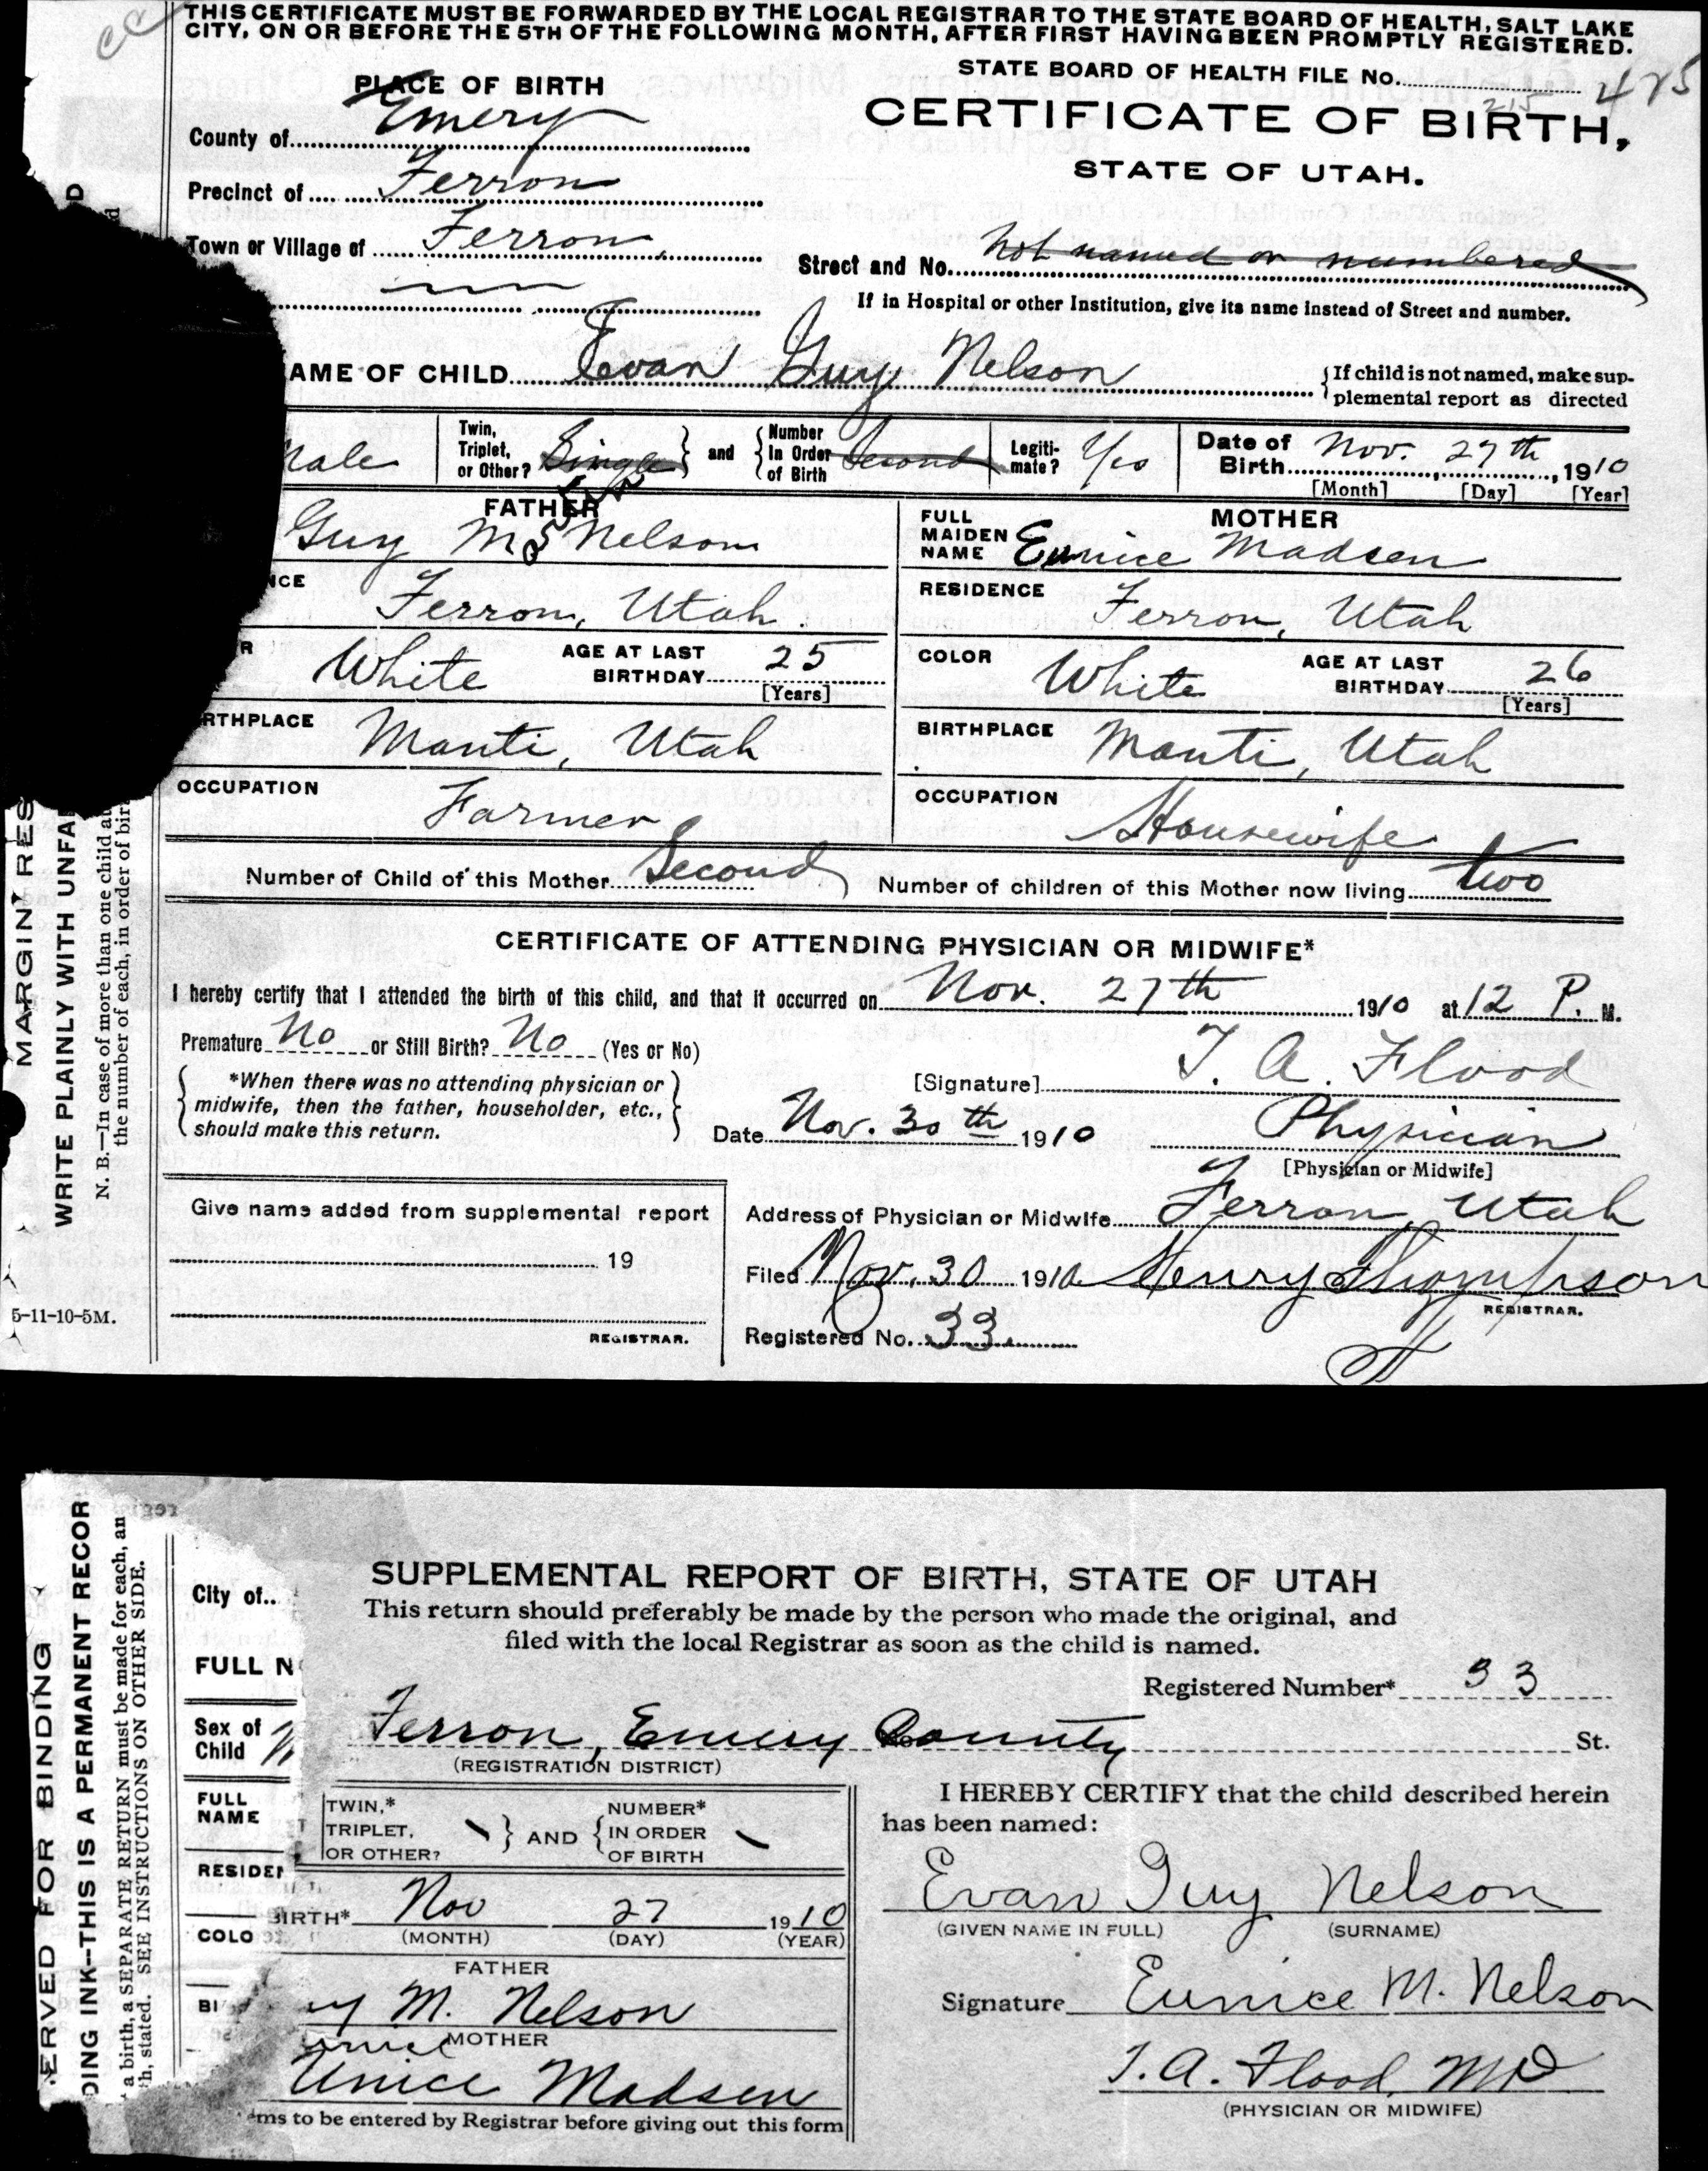 THIS CERTIFICATE MUST BE FORWARDED BY THE LOCAL REGISTRAR TO THE STATE BOARD OF HEALTH, SALT LAKE
CITY, ON OR BEFORE THE 5TH OF THE FOLLOWING MONTH, AFTER FIRST HAVING BEEN PROMPTLY REGISTERED.
STATE BOARD OF HEALTH FILE No. 425
215
PLACE OF BIRTH
CERTIFICATE OF BIRTH,
STATE OF UTAH.
County of Emery
Precinct of Ferron
Town or Village of Ferron
Street and No. Not named or numbered
If in Hospital or other Institution, give its name instead of Street and number.
AME OF CHILD Evan Guy Nelson
If child is not named, make sup-
plemental report as directed
Male
Twin, Triplet, or Other? Single
and
Number In Order of Birth Second
Legiti-mate? Yes
Date of Birth Nov. 27th, 1910
[Month] [Day] [Year]
FATHER
Guy M. Nelson
FULL MAIDEN NAME
MOTHER
Eunice Madsen
NCE Ferron, Utah.
RESIDENCE Ferron, Utah
R White
AGE AT LAST BIRTHDAY 25
[Years]
COLOR White
AGE AT LAST BIRTHDAY 26
[Years]
RTHPLACE Manti, Utah
BIRTHPLACE Manti, Utah
OCCUPATION Farmer
OCCUPATION Housewife
Number of Child of this Mother Second
Number of children of this Mother now living two
CERTIFICATE OF ATTENDING PHYSICIAN OR MIDWIFE*
I hereby certify that I attended the birth of this child, and that it occurred on Nov. 27th 1910 at 12 P. M.
Premature No or Still Birth? No (Yes or No)
*When there was no attending physician or
midwife, then the father, householder, etc.,
should make this return.
[Signature] T. A. Flood
Date Nov. 30th 1910
Physician
[Physician or Midwife]
Give name added from supplemental report
19
REGISTRAR.
Address of Physician or Midwife Ferron, Utah
Filed Nov. 30 1910 Henry Thompson
REGISTRAR.
Registered No. 33
5-11-10-5M.
MARGIN RES
WRITE PLAINLY WITH UNFA
N. B.—In case of more than one child at
the number of each, in order of bir
SUPPLEMENTAL REPORT OF BIRTH, STATE OF UTAH
This return should preferably be made by the person who made the original, and
filed with the local Registrar as soon as the child is named.
City of..
FULL N
Registered Number* 33
Sex of Child M
Ferron, Emery County
No.
St.
(REGISTRATION DISTRICT)
FULL NAME
TWIN,* TRIPLET, OR OTHER?
AND
NUMBER* IN ORDER OF BIRTH
I HEREBY CERTIFY that the child described herein
has been named:
RESIDEN
BIRTH* Nov 27 1910
(MONTH) (DAY) (YEAR)
COLO
Evan Guy Nelson
(GIVEN NAME IN FULL) (SURNAME)
FATHER
BI
uy M. Nelson
MOTHER
Unice Madsen
Signature Eunice M. Nelson
T. A. Flood, MD
(PHYSICIAN OR MIDWIFE)
ms to be entered by Registrar before giving out this form
ERVED FOR BINDING
DING INK—THIS IS A PERMANENT RECOR
a birth, a SEPARATE RETURN must be made for each, an
h, stated. SEE INSTRUCTIONS ON OTHER SIDE.